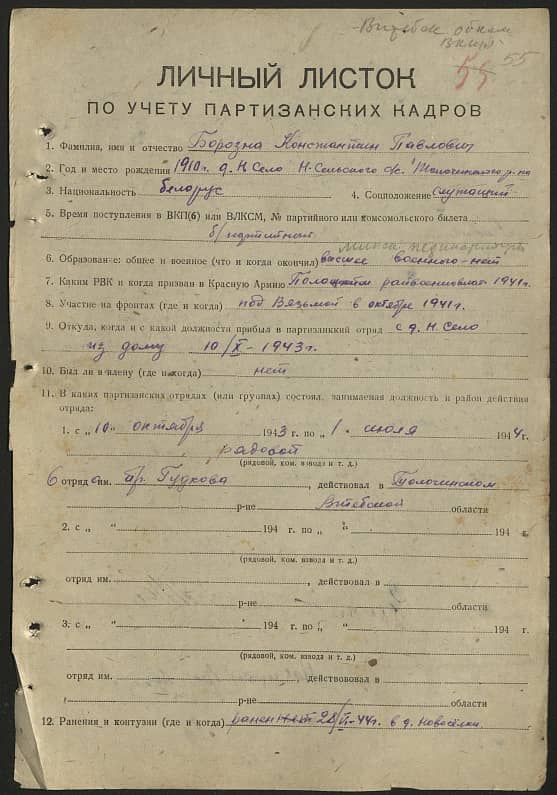 Витебск обком
55
55
ЛИЧНЫЙ ЛИСТОК
ПО УЧЕТУ ПАРТИЗАНСКИХ КАДРОВ
1. Фамилия, имя и отчество Борозна Константин Павлович
2. Год и место рождения 1910г. д. Н. Село Н-Сельского с/с. Толочинского р-на
3. Национальность белорус 4. Соцположение служащий
5. Время поступления в ВКП(б) или ВЛКСМ, № партийного или комсомольского билета
б/партийный
Минск
6. Образование: общее и военное (что и когда окончил) высшее военного-нет
7. Каким РВК и когда призван в Красную Армию райвоенкомат 1941г.
8. Участие на фронтах (где и когда) под Вязьмой в октябре 1941г.
9. Откуда, когда и с какой должности прибыл в партизанский отряд с д. Н. Село
из дому 10/X-1943г.
10. Был ли в плену (где и когда) нет
11. В каких партизанских отрядах (или группах) состоял, занимаемая должность и район действия
отряда:
1. с „10“ октября 1943 г. по „1“ июля 1944г.
рядовой
(рядовой, ком. взвода и т. д.)
6 отряд им. бр. Гудкова, действовал в Толочинском
р-не Витебской области
2. с „ “ 194 г. по „ “ 194 г.
(рядовой, ком. взвода и т. д.)
отряд им. , действовал в
р-не области
3. с „ “ 194 г. по „ “ 194 г.
(рядовой, ком. взвода и т. д.)
отряд им. действовал в
р-не области
12. Ранения и контузии (где и когда) ранен нет 28/VI-44г. в д. Новосёлки.